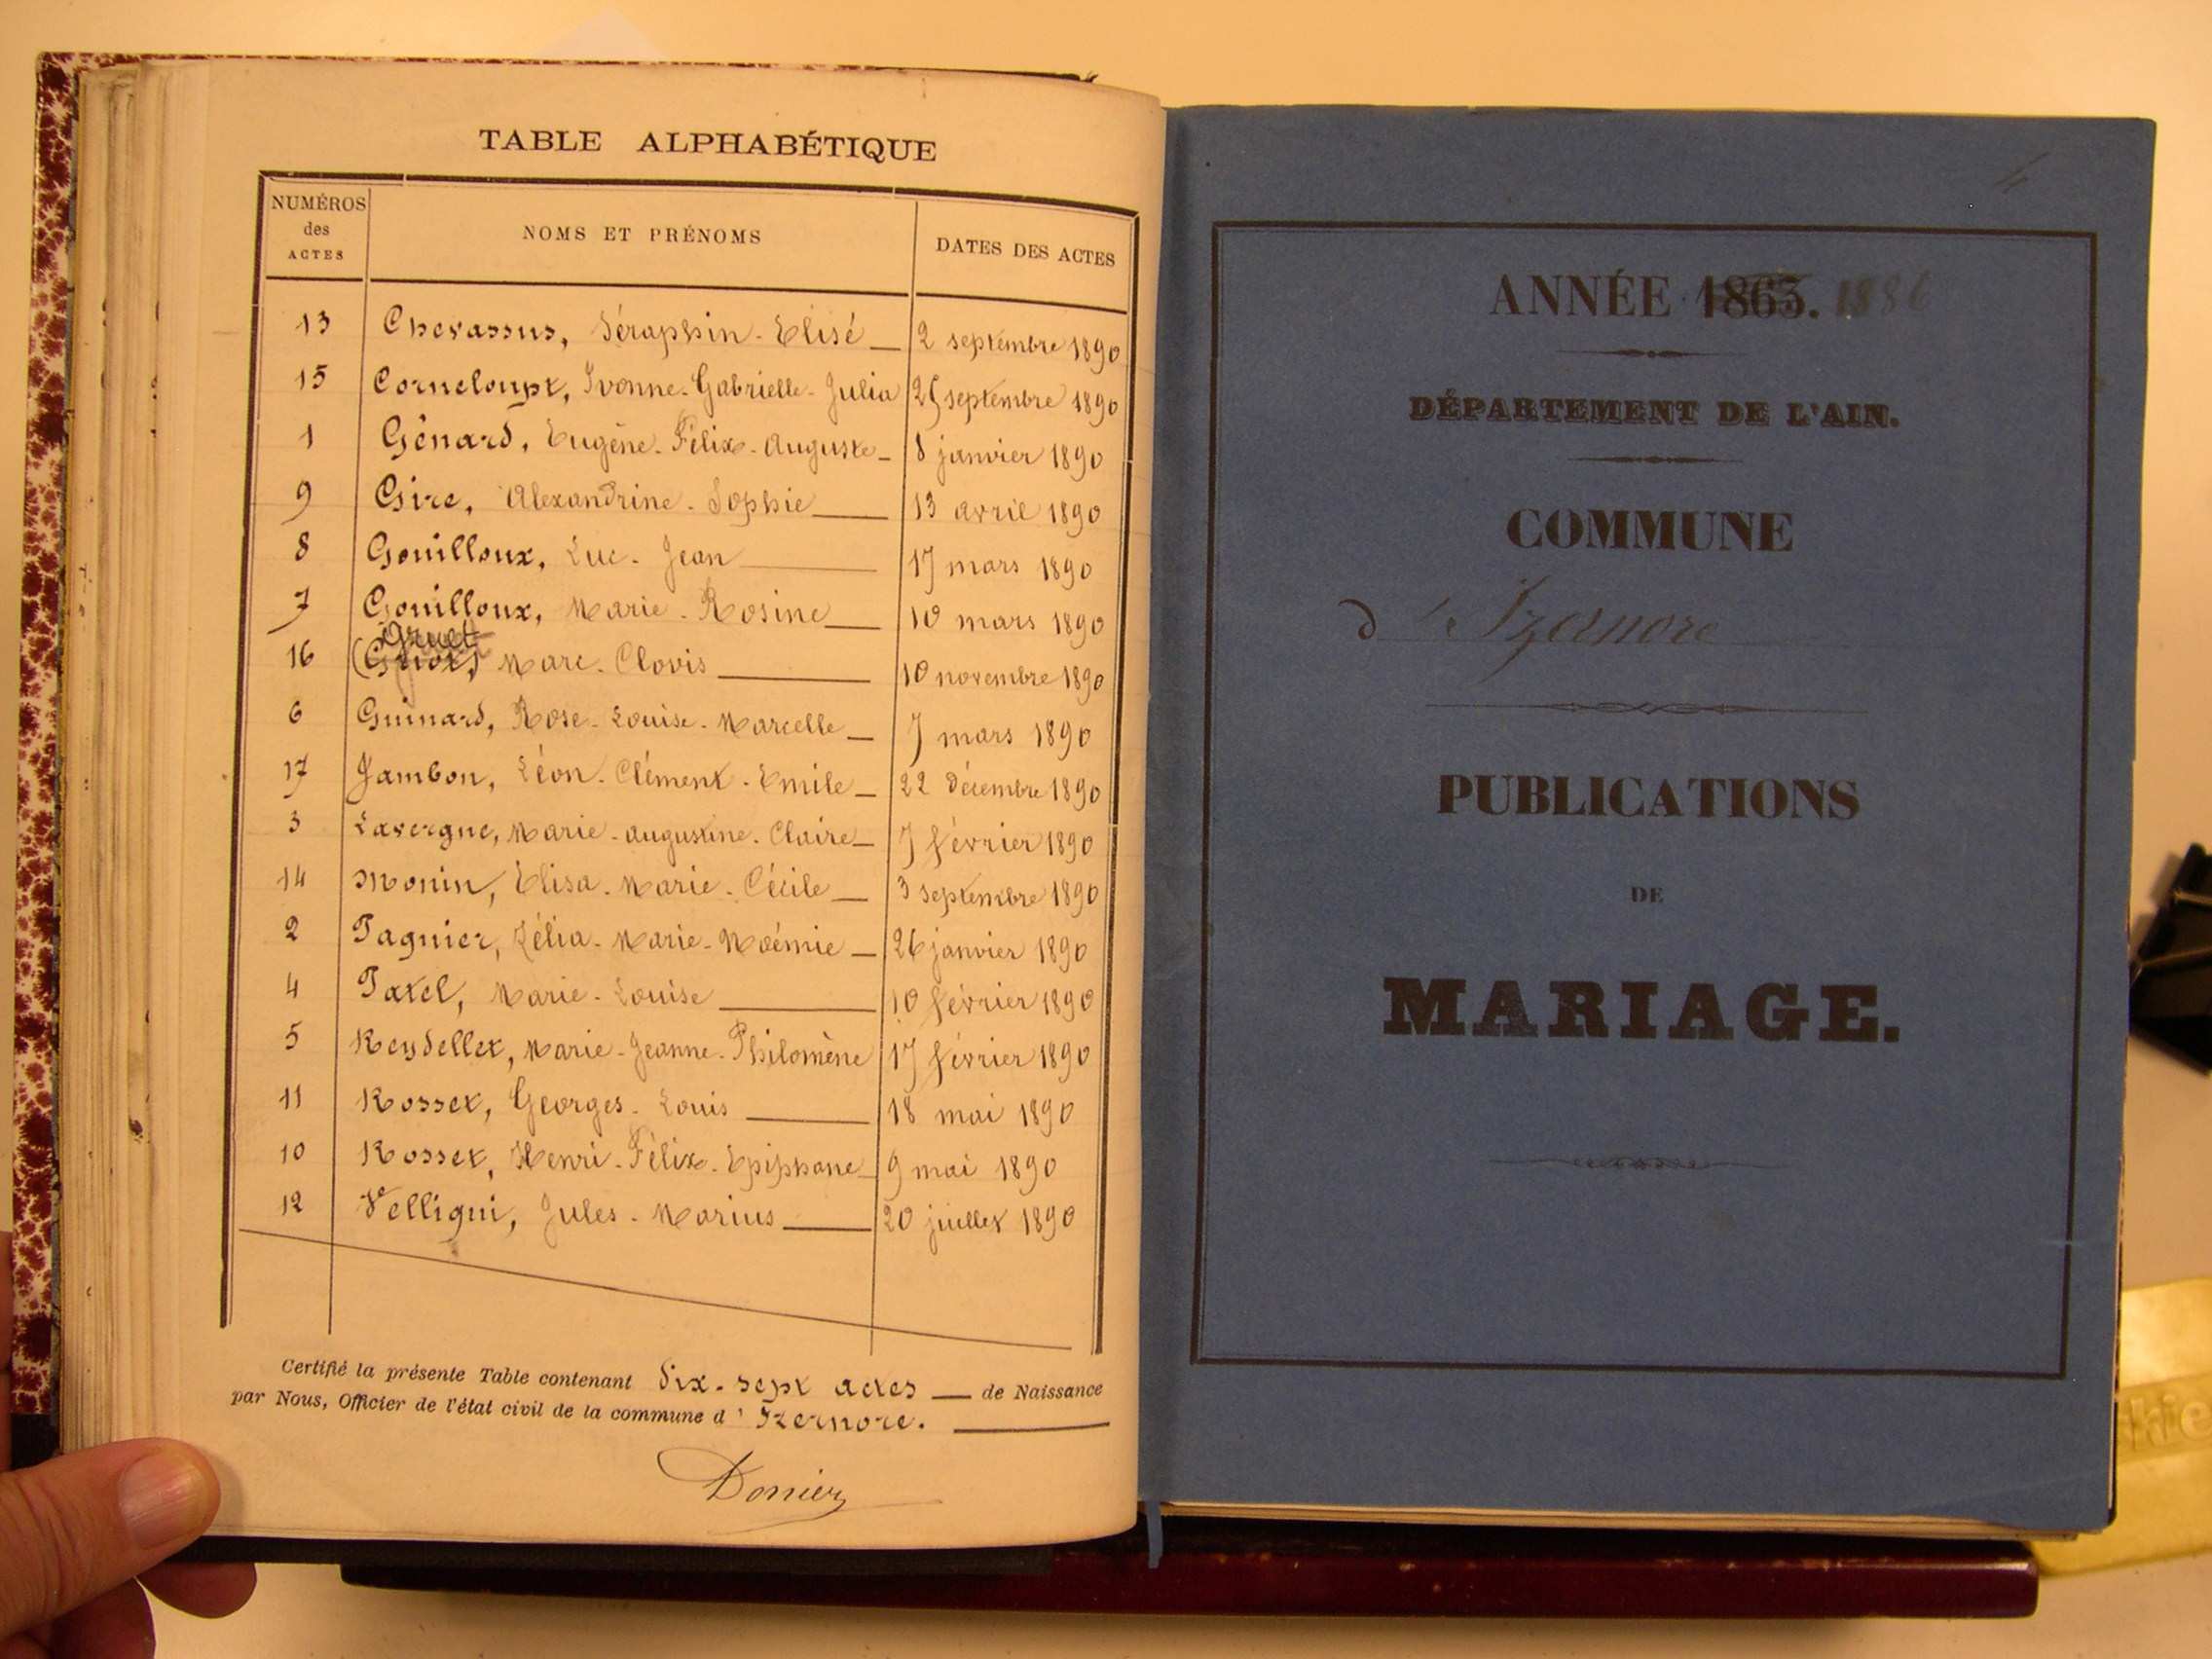 TABLE ALPHABÉTIQUE
NUMÉROS des ACTES
NOMS ET PRÉNOMS
DATES DES ACTES
13 Chevassus, Séraphin-Elisé 2 septembre 1890
15 Corneloupt, Ivonne-Gabrielle-Julia 25 septembre 1890
1 Gênard, Eugène-Félix-Auguste 8 janvier 1890
9 Gire, Alexandrine-Sophie 13 avril 1890
8 Gouilloux, Luc-Jean 17 mars 1890
7 Gouilloux, Marie-Rosine 10 mars 1890
Gruet
16 Marc-Clovis 10 novembre 1890
6 Guinard, Rose-Louise-Marcelle 7 mars 1890
17 Jambon, Léon-Clément-Emile 22 décembre 1890
3 Lavergne, Marie-Augustine-Claire 7 février 1890
14 Monin, Elisa-Marie-Cécile 3 septembre 1890
2 Pagnier, Zélia-Marie-Noémie 26 janvier 1890
4 Patel, Marie-Louise 10 février 1890
5 Reydellet, Marie-Jeanne-Philomène 17 février 1890
11 Rosset, Georges-Louis 18 mai 1890
10 Rosset, Henri-Félix-Epiphane 9 mai 1890
12 Velligni, Jules-Marius 20 juillet 1890
Certifié la présente Table contenant Dix-sept actes de Naissance
par Nous, Officier de l'état civil de la commune d'Izernore.
ANNÉE 1863. 1886
DÉPARTEMENT DE L'AIN.
COMMUNE
d'Izernore
PUBLICATIONS
DE
MARIAGE.